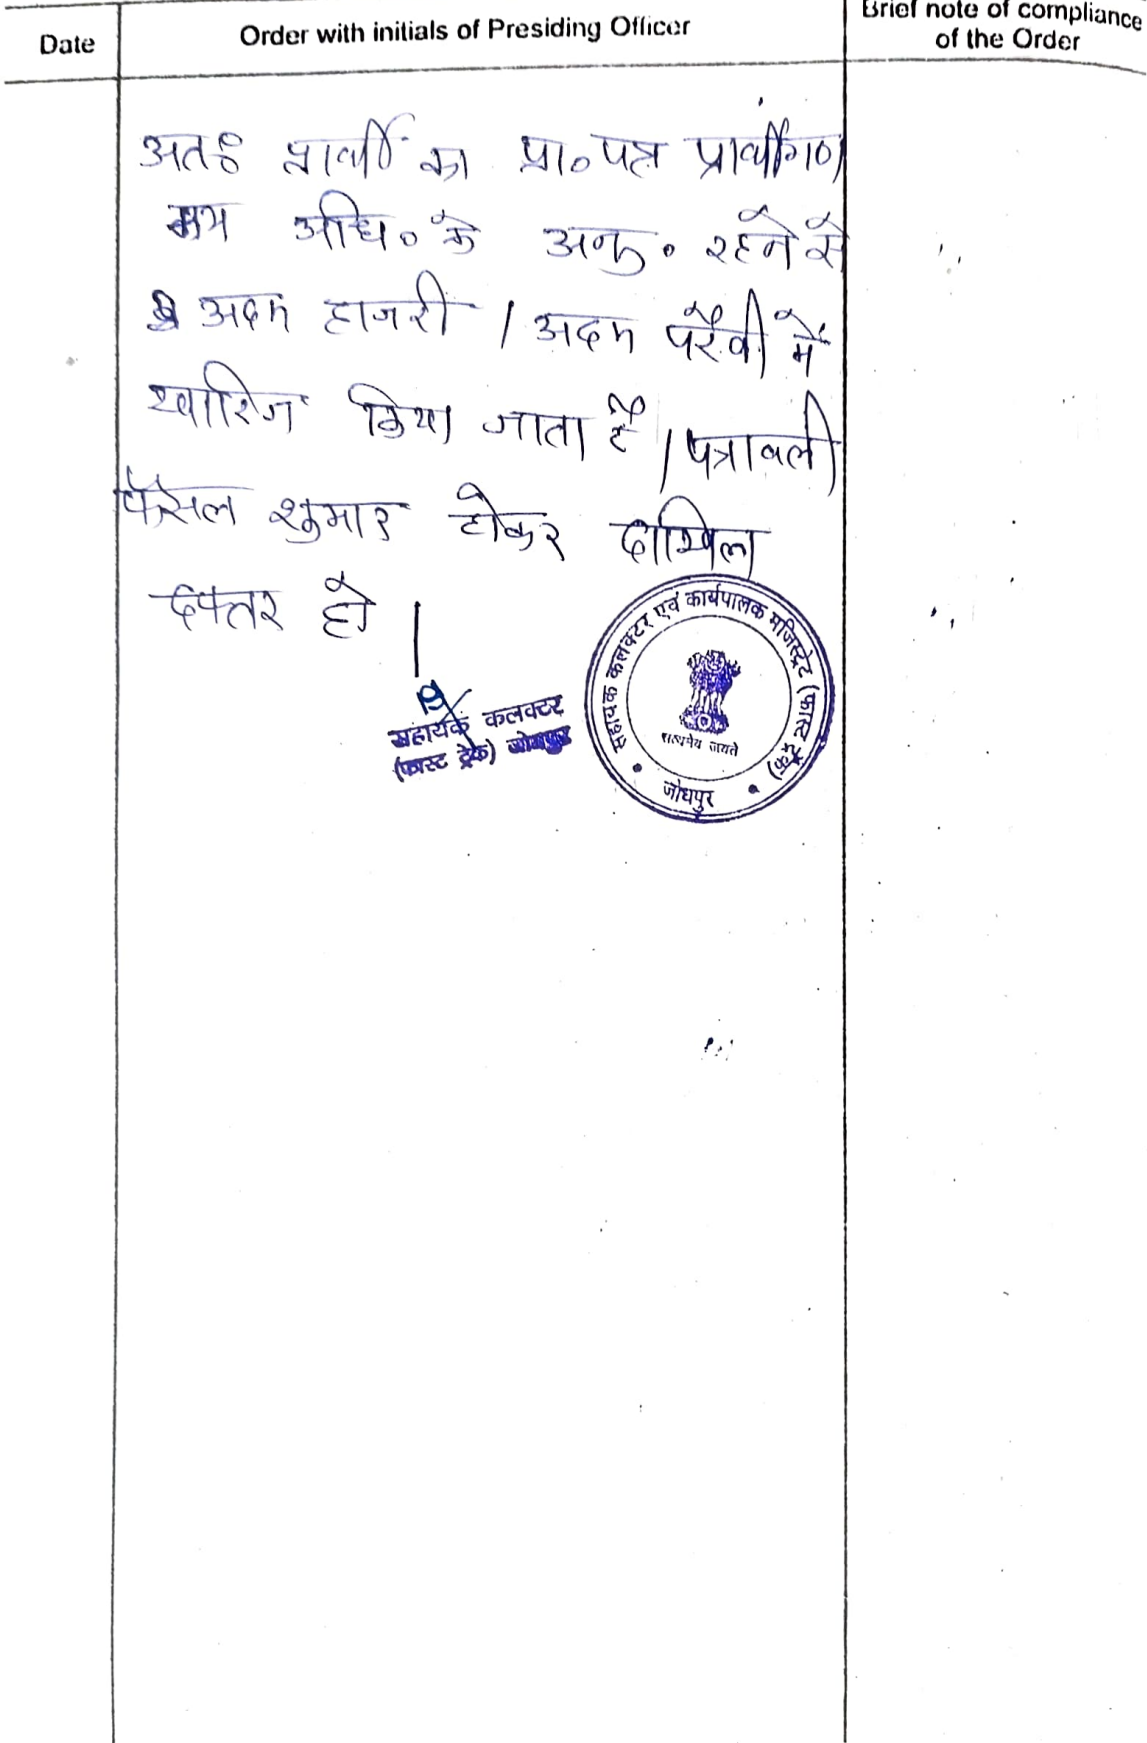 Date
Order with initials of Presiding Officer
Brief note of compliance
of the Order
अतः प्रार्थी का प्रा० पत्र प्रार्थीगण
मय अधि० के अनु० रहने से
अदम हाजरी / अदम पैरवी में
खारिज किया जाता है / पत्रावली
फैसल शुमार होकर दाखिल
दफ्तर हो |
सहायक कलक्टर
(फास्ट ट्रेक) जोधपुर
सहायक कलक्टर एवं कार्यपालक मजिस्ट्रेट (फास्ट ट्रेक)
सत्यमेव जयते
जोधपुर